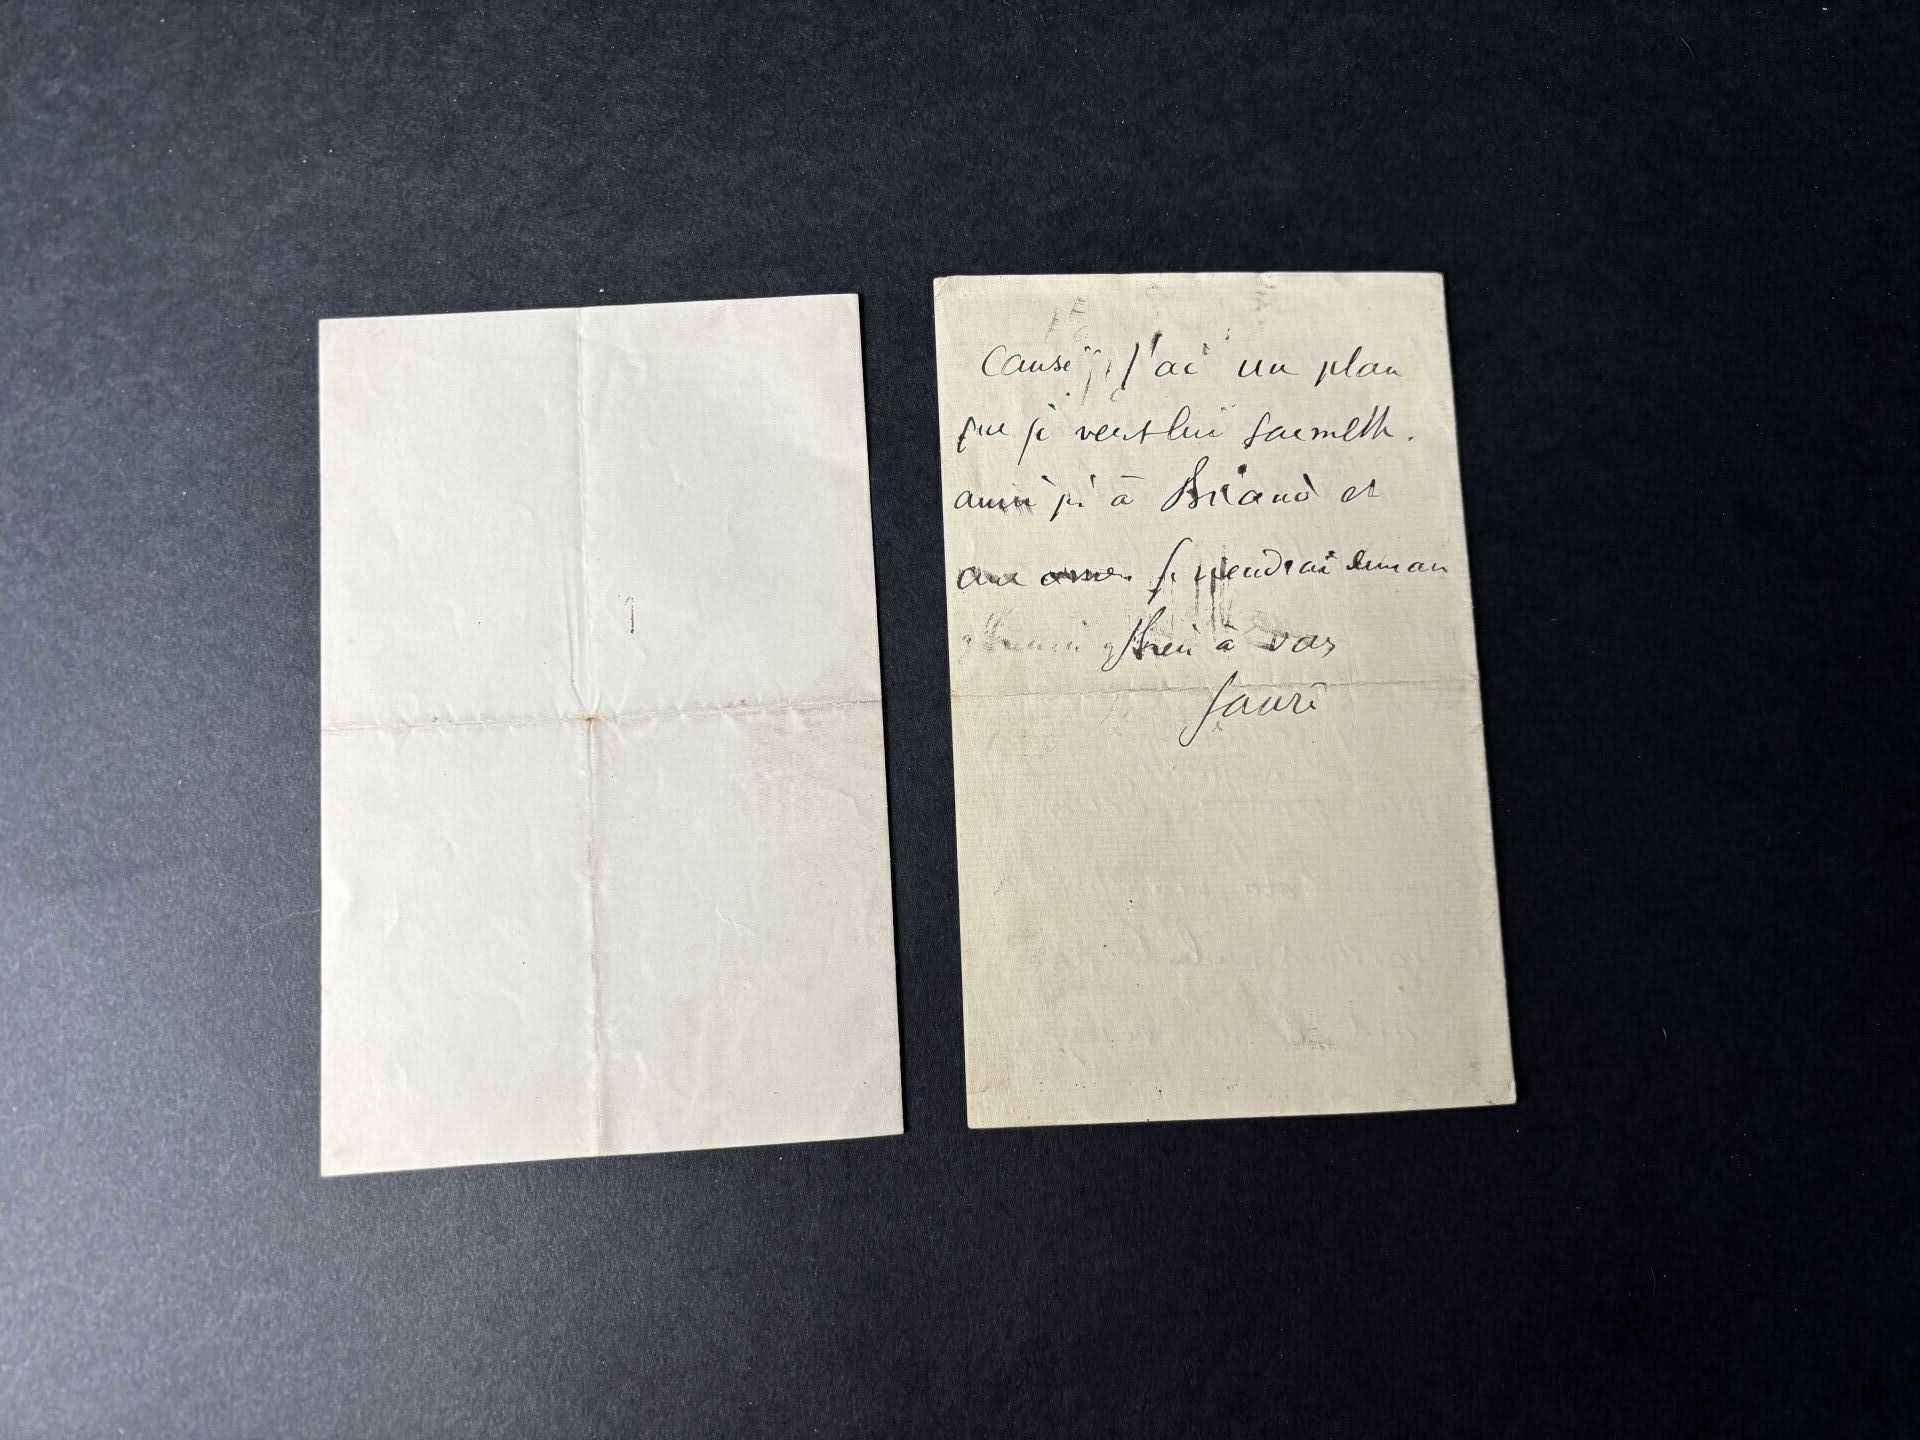 cause, j'ai un plan
que je veux lui soumettre.
ainsi qu' à Briand et
aux je viendrai demain
bien à vous
Jaurès